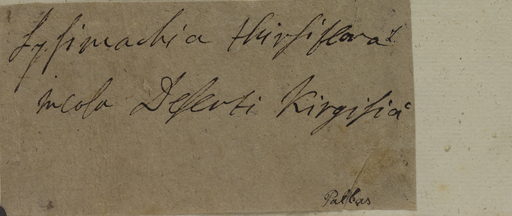 Lysimachia thirsiflora
incola Deserti Kirgisiā
Pallas